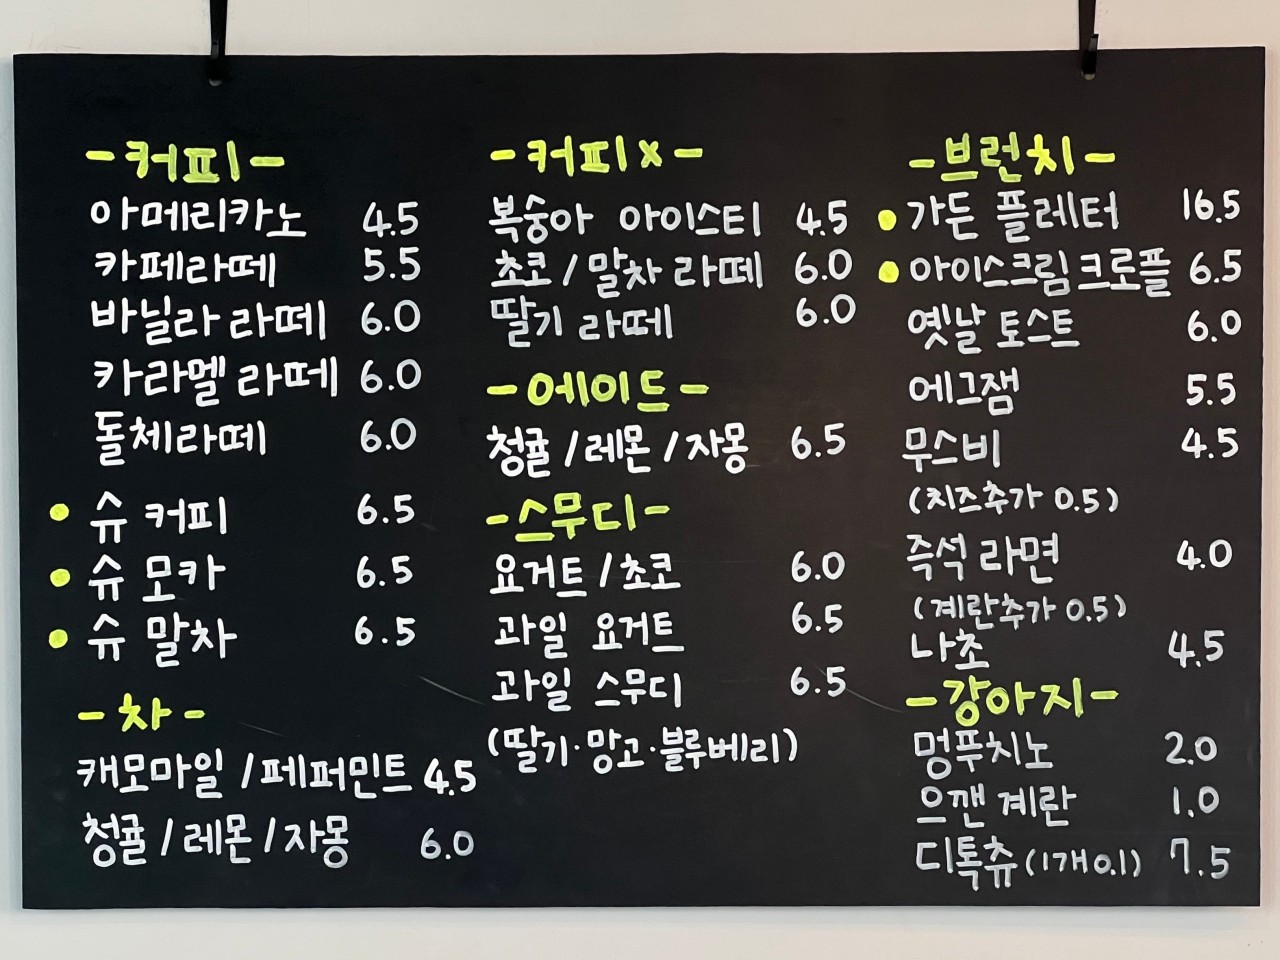 -커피-
아메리카노 4.5
카페라떼 5.5
바닐라 라떼 6.0
카라멜 라떼 6.0
돌체라떼 6.0
슈 커피 6.5
슈 모카 6.5
슈 말차 6.5
-차-
캐모마일 / 페퍼민트 4.5
청귤 / 레몬 / 자몽 6.0
-커피 x-
복숭아 아이스티 4.5
초코 / 말차 라떼 6.0
딸기 라떼 6.0
-에이드-
청귤 / 레몬 / 자몽 6.5
-스무디-
요거트 / 초코 6.0
과일 요거트 6.5
과일 스무디 6.5
(딸기·망고·블루베리)
-브런치-
가든 플레터 16.5
아이스크림 크로플 6.5
옛날 토스트 6.0
에그잼 5.5
무스비 4.5
(치즈추가 0.5)
즉석 라면 4.0
(계란추가 0.5)
나초 4.5
-강아지-
멍푸치노 2.0
으깬 계란 1.0
디톡츄 (1개 0.1) 7.5